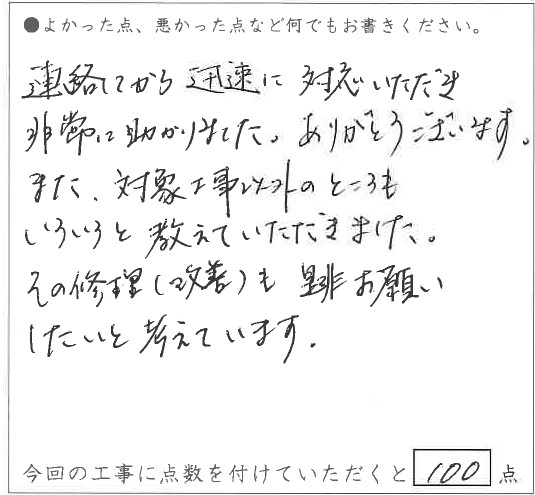 ●よかった点、悪かった点など何でもお書きください。
連絡してから迅速に対応いただき
非常に助かりました。ありがとうございます。
また、対象工事以外のところも
いろいろと教えていただきました。
その修理(改善)も是非お願い
したいと考えています.
今回の工事に点数を付けていただくと 100 点